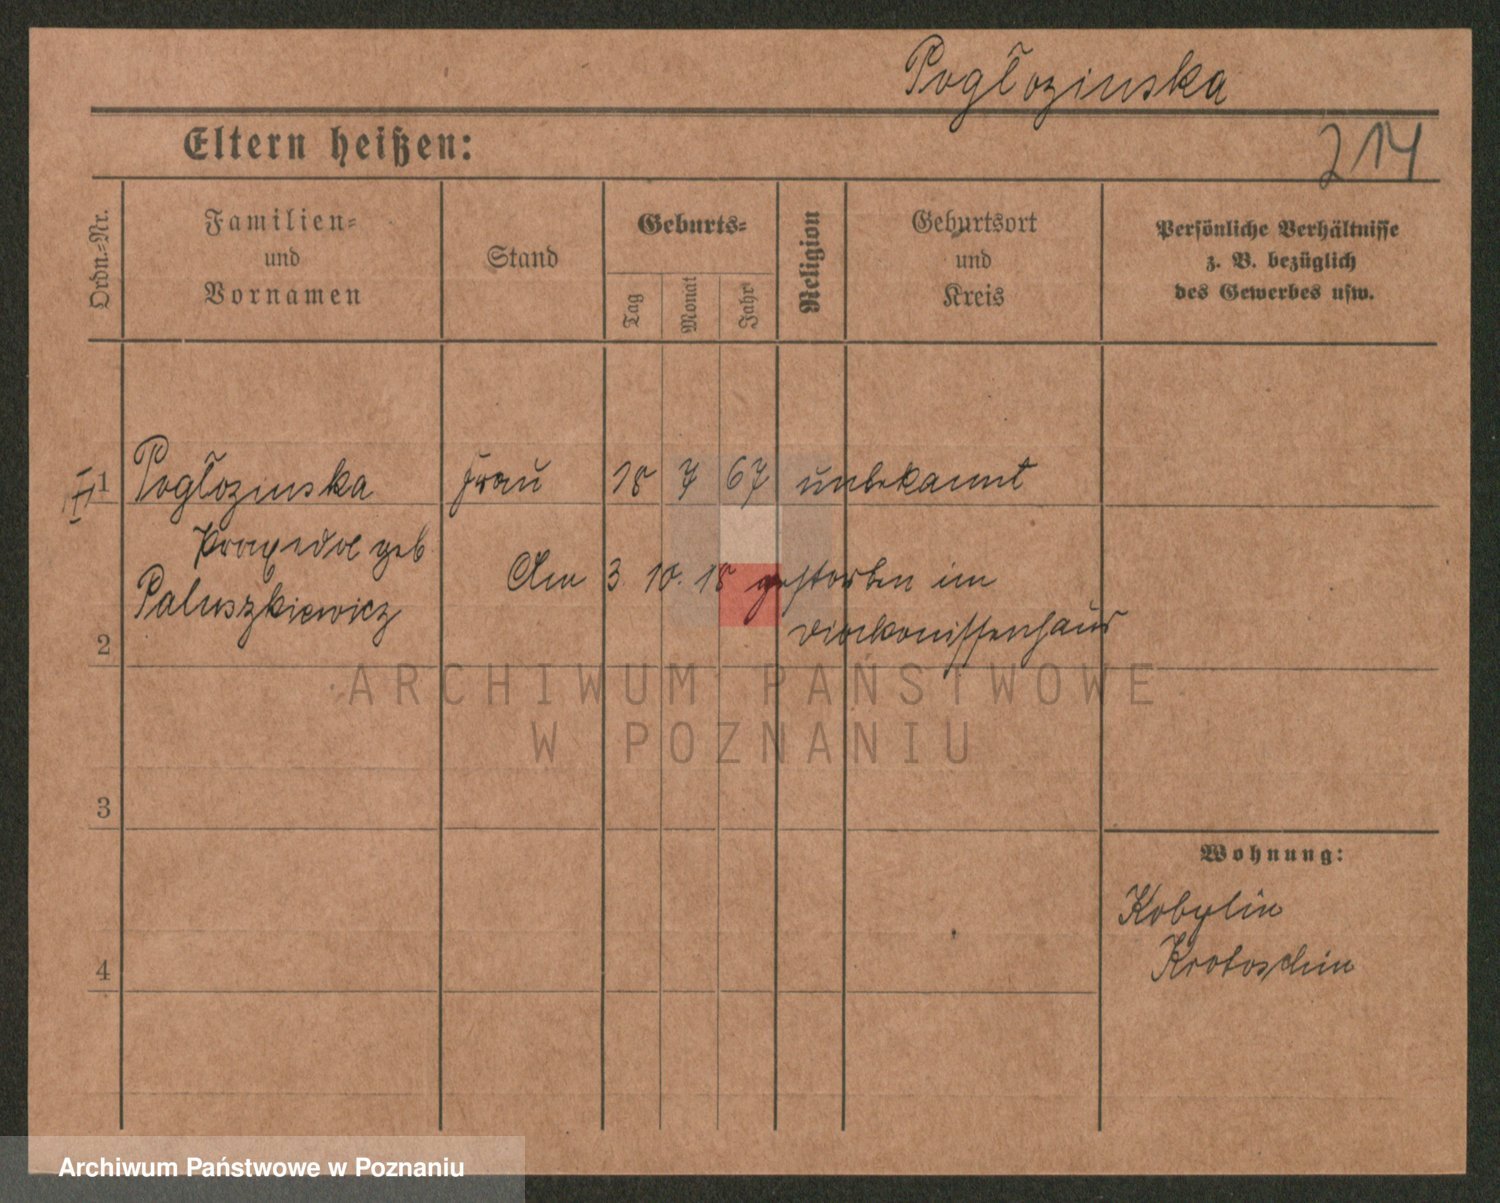 Pogłozinska
214
Eltern heißen:
Ordn.-Nr.
Familien- und Vornamen
Stand
Geburts-
Tag
Monat
Jahr
Religion
Geburtsort und Kreis
Persönliche Verhältnisse
z. B. bezüglich
des Gewerbes usw.
1 Pogłozinska Frau 18 7 67 unbekannt
Praxeda geb
Am 3. 10. 18 gestorben im
Paluszkiewicz
Diakonissenhaus
2
ARCHIWUM PAŃSTWOWE
W POZNANIU
3
Wohnung:
Kobylin
Krotoschin
4
Archiwum Państwowe w Poznaniu